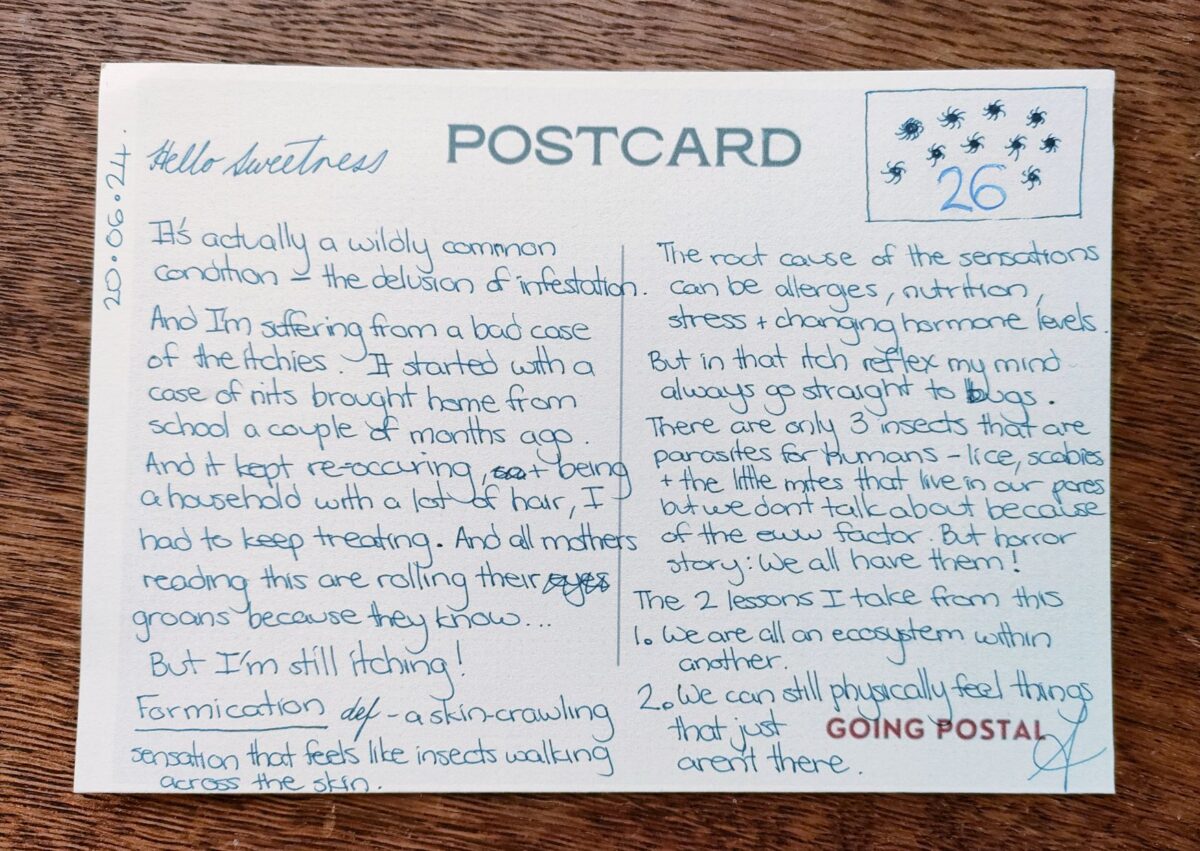 POSTCARD
26
20.06.24.
Hello Sweetness
It's actually a wildly common
condition – the delusion of infestation.
And I'm suffering from a bad case
of the itchies. It started with a
case of nits brought home from
school a couple of months ago.
And it kept re-occuring, + being
a household with a lot of hair, I
had to keep treating. And all mothers
reading this are rolling their eyes
groans because they know...
But I'm still itching!
Formication def - a skin-crawling
sensation that feels like insects walking
across the skin.
The root cause of the sensations
can be allerges, nutrition,
stress + changing hormone levels.
But in that itch reflex my mind
always go straight to bugs.
There are only 3 insects that are
parasites for Humans - lice, scabies
+ the little mites that live in our pores
but we dont talk about because
of the eww factor. But horror
story: We all have them!
The 2 lessons I take from this
1. We are all an ecosystem within
another.
2. We can still physically feel things
that just
arent there.
GOING POSTAL